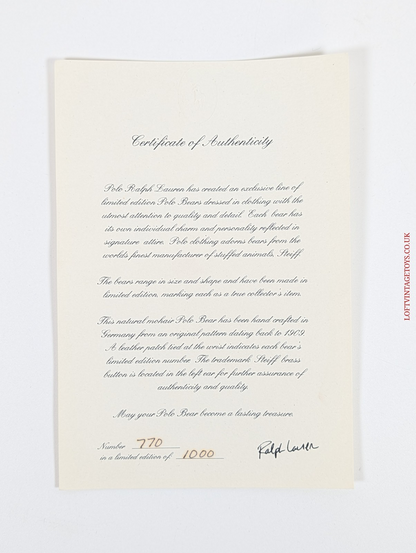 Certificate of Authenticity
Polo Ralph Lauren has created an exclusive line of
limited edition Polo Bears dressed in clothing with the
utmost attention to quality and detail. Each bear has
its own individual charm and personality reflected in
signature attire. Polo clothing adorns bears from the
world's finest manufacturer of stuffed animals, Steiff.
The bears range in size and shape and have been made in
limited edition, marking each as a true collector's item.
This natural mohair Polo Bear has been hand crafted in
Germany from an original pattern dating back to 1909.
A leather patch tied at the wrist indicates each bear's
limited edition number. The trademark Steiff brass
button is located in the left ear for further assurance of
authenticity and quality.
May your Polo Bear become a lasting treasure.
Number 770
in a limited edition of 1000
Ralph Lauren
LOFTVINTAGETOYS.CO.UK